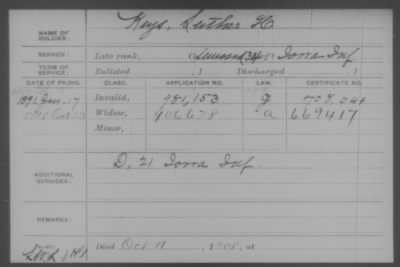 NAME OF SOLDIER: Keys, Luther H
SERVICE: Late rank, Iowa Inf.
TERM OF SERVICE: Enlisted , 1 Discharged , 1
DATE OF FILING. CLASS. APPLICATION NO. LAW. CERTIFICATE NO.
Invalid, 981,153 g
Widow, 906678 a 669417
Minor,
ADDITIONAL SERVICES: D, 21 Iowa Inf.
REMARKS:
Died Oct 11 , 1908, at